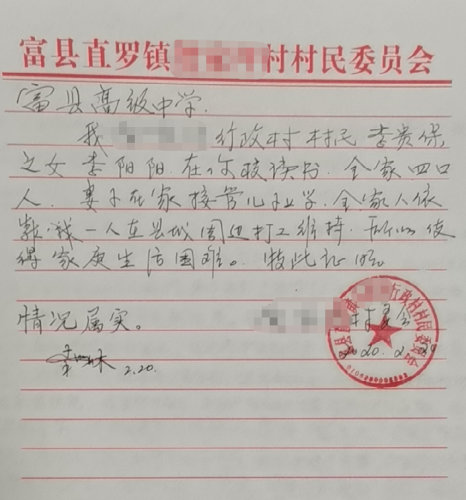 富县直罗镇 村村民委员会
富县高级中学.
我 行政村村民 李贵保
之女 李阳阳 在你校读书. 全家四口
人. 妻子在家接管儿子上学. 全家人依
靠 我一人在县城周边打工维持. 所以使
得家庭生活困难。特此证明
情况属实。 村委会
2020.2.20
2.20.
行政村村民委员会